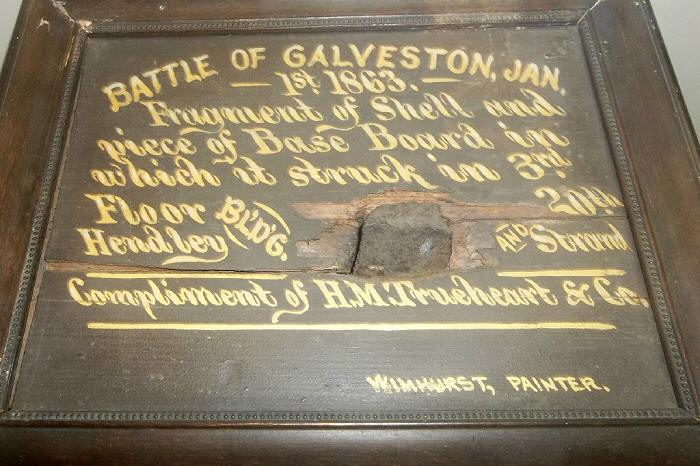 BATTLE OF GALVESTON, JAN.
1st 1863.
Fragment of Shell and
piece of Base Board in
which it struck in 3rd
Floor BLD'G. 20th
Hendley AND Strand
Compliment of H.M. Trueheart & Co.
WIMHURST, PAINTER.